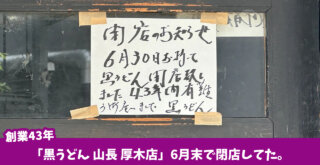 閉店のお知らせ
6月30日お持て
黒うどん閉店致し
ました 43年内有難
うございまして 黒うどん
創業43年
「黒うどん 山長 厚木店」6月末で閉店してた。